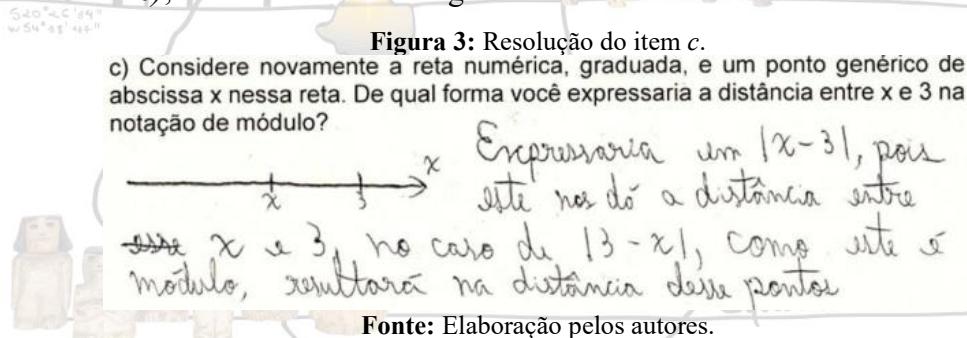 S20°26'34"
W54°
Figura 3: Resolução do item c.
c) Considere novamente a reta numérica, graduada, e um ponto genérico de
abscissa x nessa reta. De qual forma você expressaria a distância entre x e 3 na
notação de módulo?
Expressaria um |x-3|, pois
este nos dó a distância entre
esse x e 3, no caso de |3-x|, como este é
módulo, resultará na distância desse pontos
x
x 3
Fonte: Elaboração pelos autores.